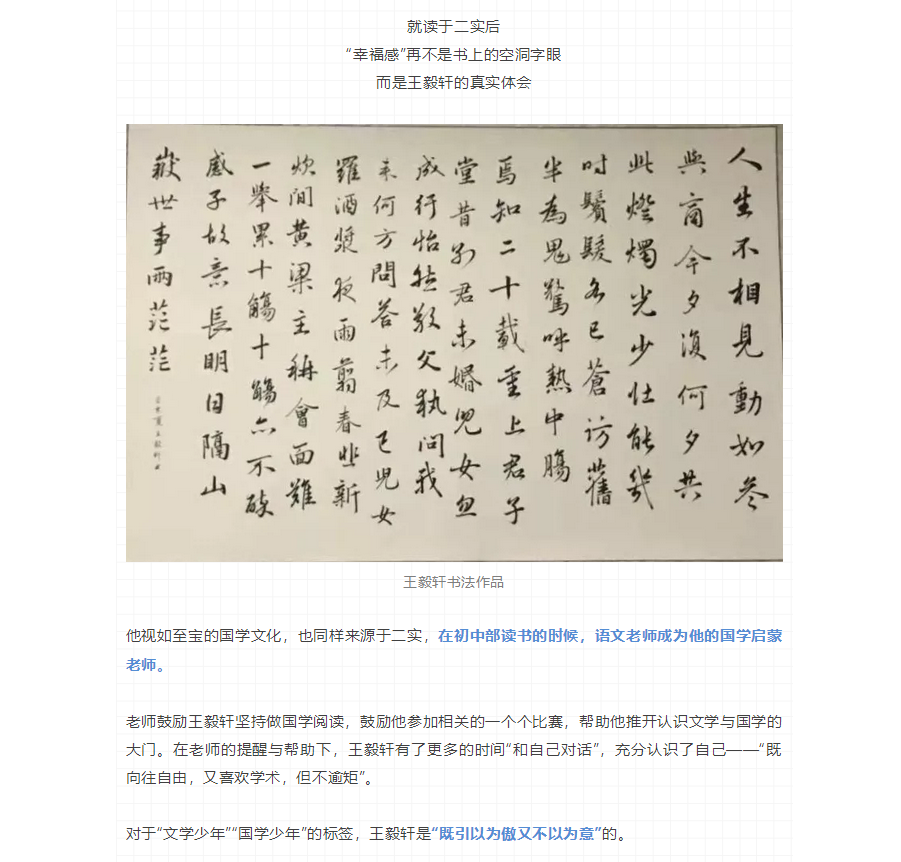 就读于二实后
“幸福感”再不是书上的空洞字眼
而是王毅轩的真实体会
人生不相見動如参
與商今夕復何夕共
此燈燭光少壮能幾
时鬢髮各已蒼访舊
半為鬼驚呼熱中腸
焉知二十載重上君子
堂昔别君未婚兒女忽
成行怡然敬父執问我
来何方問答未及已兒女
羅酒漿夜雨翦春韭新
炊間黄梁主稱會面難
一舉累十觴十觴亦不醉
感子故意長明日隔山
嶽世事兩茫茫
王毅轩书法作品
他视如至宝的国学文化，也同样来源于二实，在初中部读书的时候，语文老师成为他的国学启蒙
老师。
老师鼓励王毅轩坚持做国学阅读，鼓励他参加相关的一个个比赛，帮助他推开认识文学与国学的
大门。在老师的提醒与帮助下，王毅轩有了更多的时间“和自己对话”，充分认识了自己——“既
向往自由，又喜欢学术，但不逾矩”。
对于“文学少年”“国学少年”的标签，王毅轩是“既引以为傲又不以为意”的。